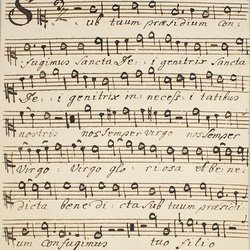 Sub tuum præsidium con:
fugimus Sancta De: i genitrix Sancta
De: i genitrix in necess: i tatibus
nostris nos Semper Virgo nos Semper
Virgo: Virgo glo: riosa et bene:
dicta bene di: cta Sub tuum præsidi:
um Confugimus tuo filio